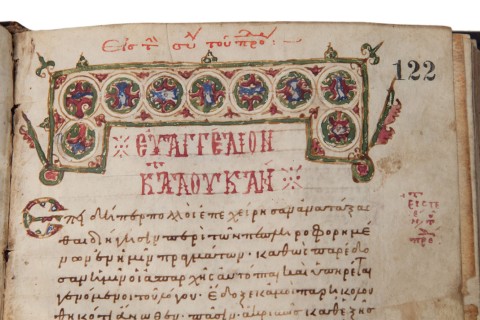 Εἰς τὴ σύ τοῦ προ
122
ΕΥΑΓΓΕΛΙΟΝ
ΚΑΤ ΛΟΥΚΑΝ
Ἐπειδήπερ πολλοὶ ἐπεχείρησαν ἀνατάξα
σθαι διήγησιν περὶ τῶν πεπληροφορημέ
νων ἐν ἡμῖν πραγμάτων. καθὼς παρέδο
σαν ἡμῖν οἱ ἀπαρχῆς αὐτόπται καὶ ὑπηρέται
γενόμενοι τοῦ λόγου. ἔδοξε κἀμοὶ παρηκολου
θηκότι ἄνωθεν πᾶσιν ἀκριβῶς καθεξῆς